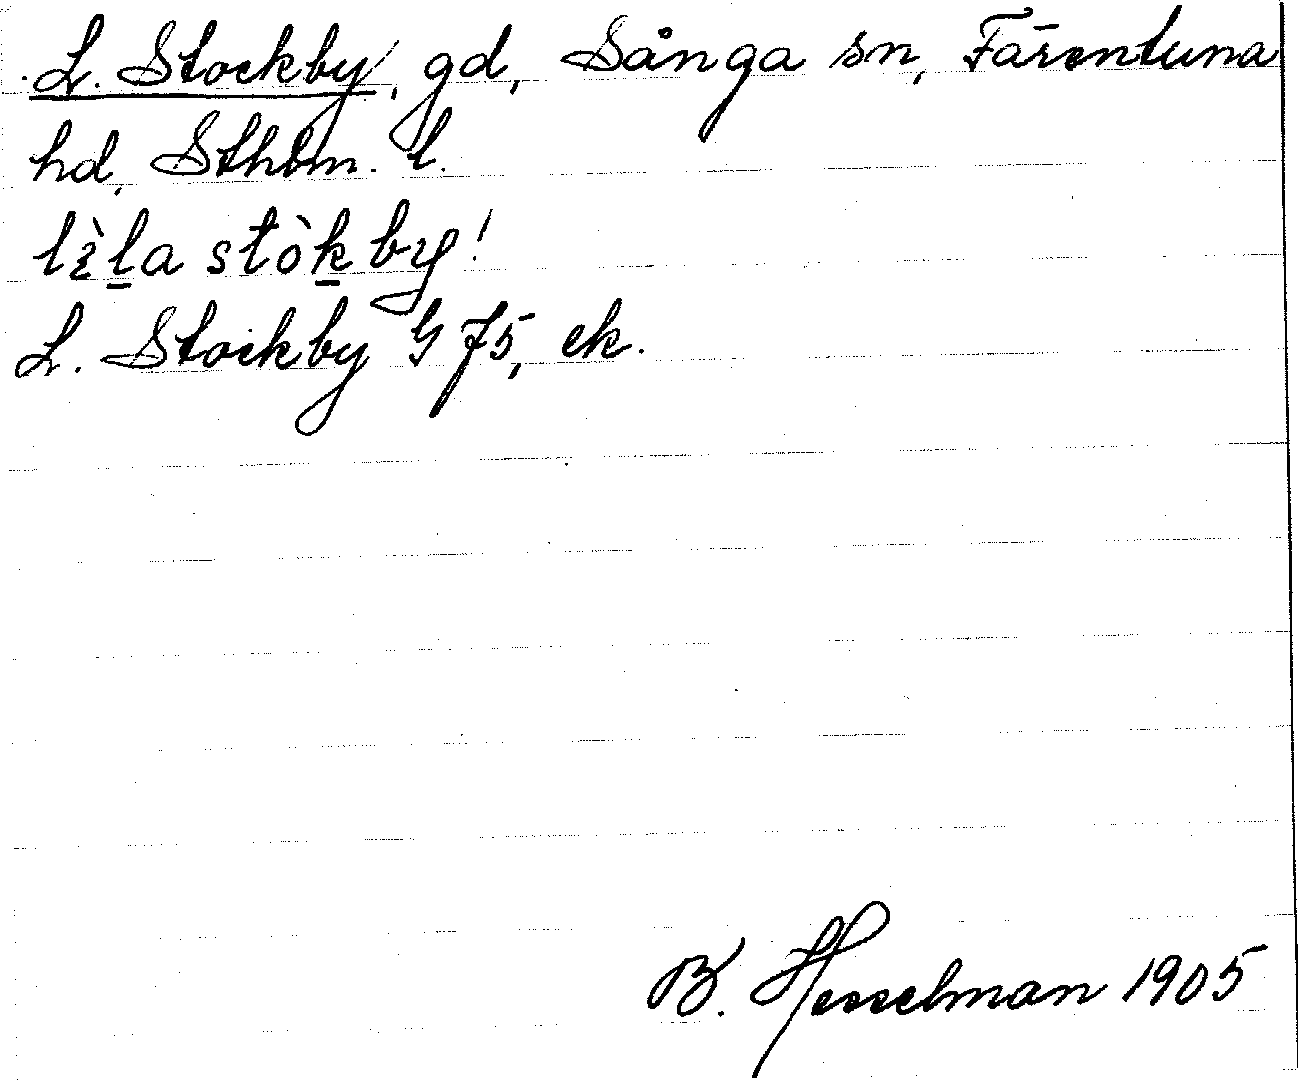 L. Stockby, gd, Sånga sn, Färentuna
hd, Sthlm. l.
lìl̠a stòk̠by!
L. Stockby G 75, ek.
B. Hesselman 1905